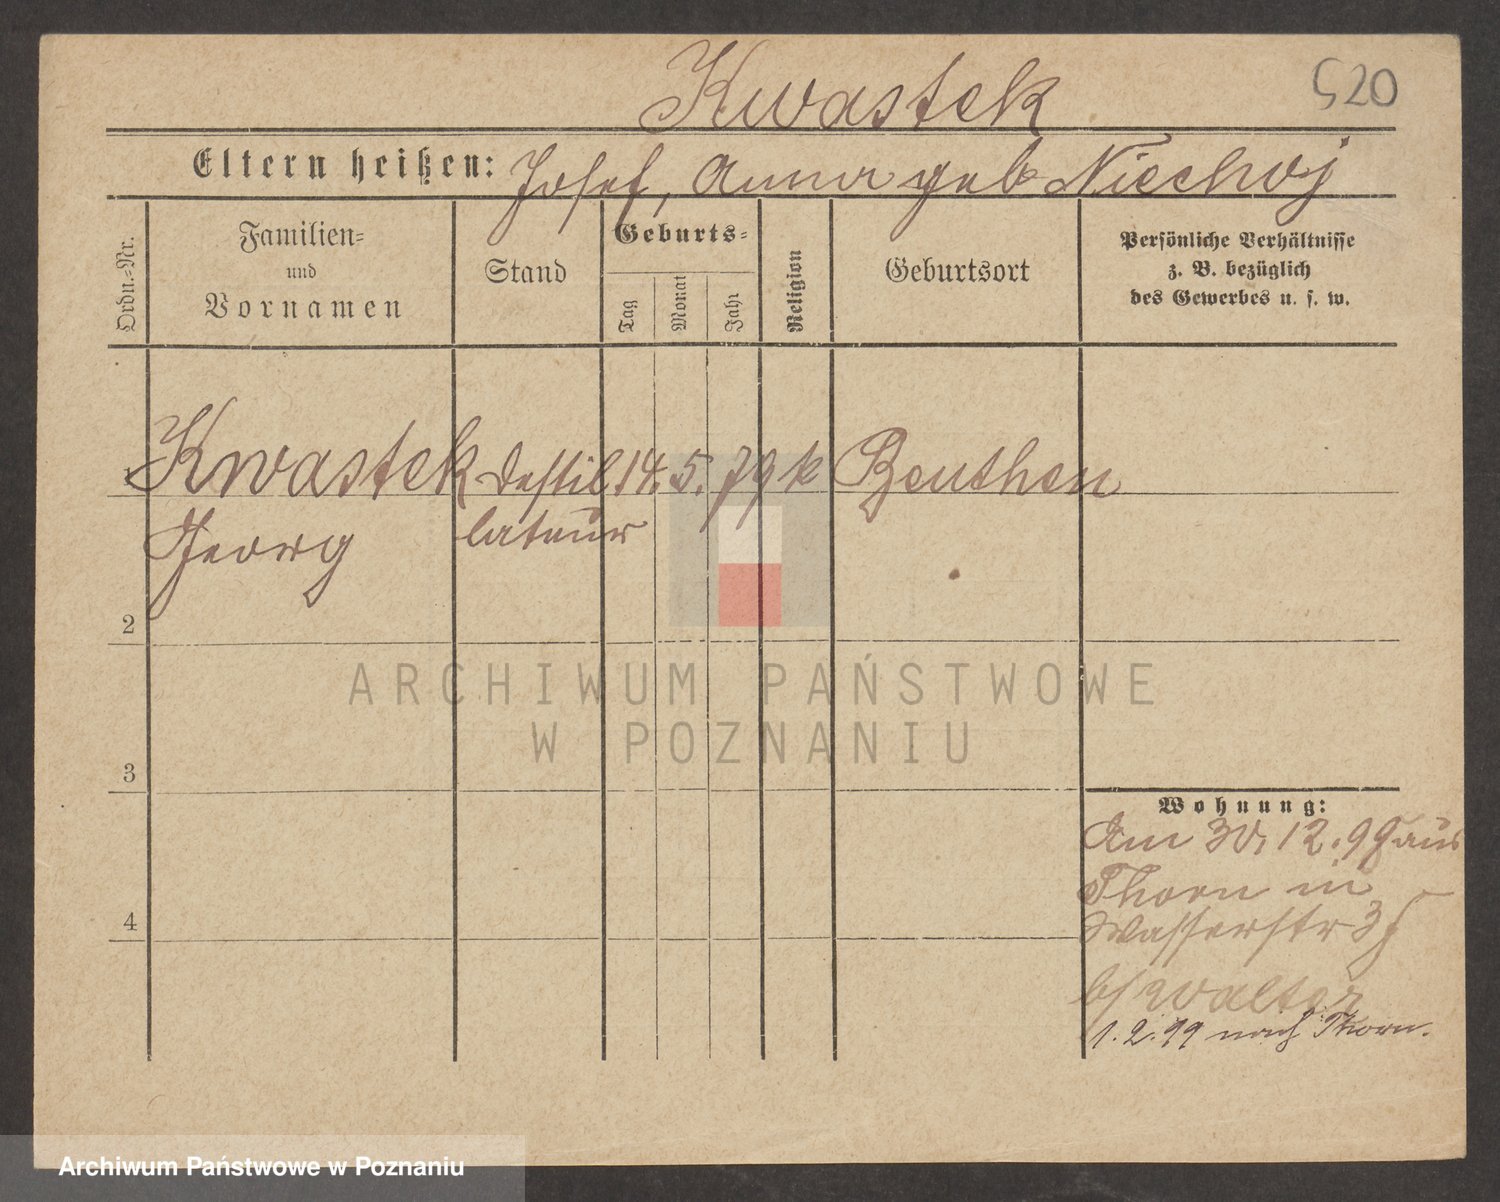 Kwastek
520
Eltern heißen: Josef, Anna geb Niechoj
Ordn.-Nr.
Familien-
und
Vornamen
Stand
Geburts-
Tag
Monat
Jahr
Religion
Geburtsort
Persönliche Verhältnisse
z. B. bezüglich
des Gewerbes u. s. w.
1 Kwastek Destil 14. 5. 79 k Beuthen
Georg lateur
2
3
4
Wohnung:
Am 30. 12. 99 aus
Thorn in
Wasserstr
b/ Walter
1. 2. 99 nach Thorn.
ARCHIWUM PAŃSTWOWE
W POZNANIU
Archiwum Państwowe w Poznaniu